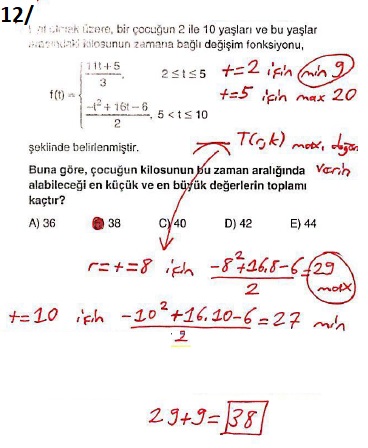 12/
olmak üzere, bir çocuğun 2 ile 10 yaşları ve bu yaşlar
arasındaki kilosunun zamana bağlı değişim fonksiyonu,
f(t) = { (11t + 5)/3, 2 ≤ t ≤ 5
(-t² + 16t - 6)/2, 5 < t ≤ 10
t=2 için min 9
t=5 için max 20
şeklinde belirlenmiştir.
T(r,k) max, değer
verir
Buna göre, çocuğun kilosunun bu zaman aralığında
alabileceği en küçük ve en büyük değerlerin toplamı
kaçtır?
A) 36 38 C) 40 D) 42 E) 44
r=t=8 için (-8²+16.8-6)/2 = 29 max
t=10 için (-10²+16.10-6)/2 = 27 min
29+9=38